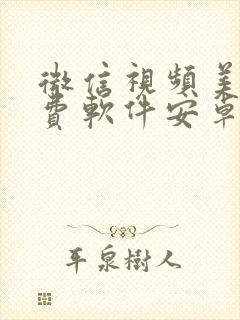 微信視頻美
費軟件安卓
平泉樹人